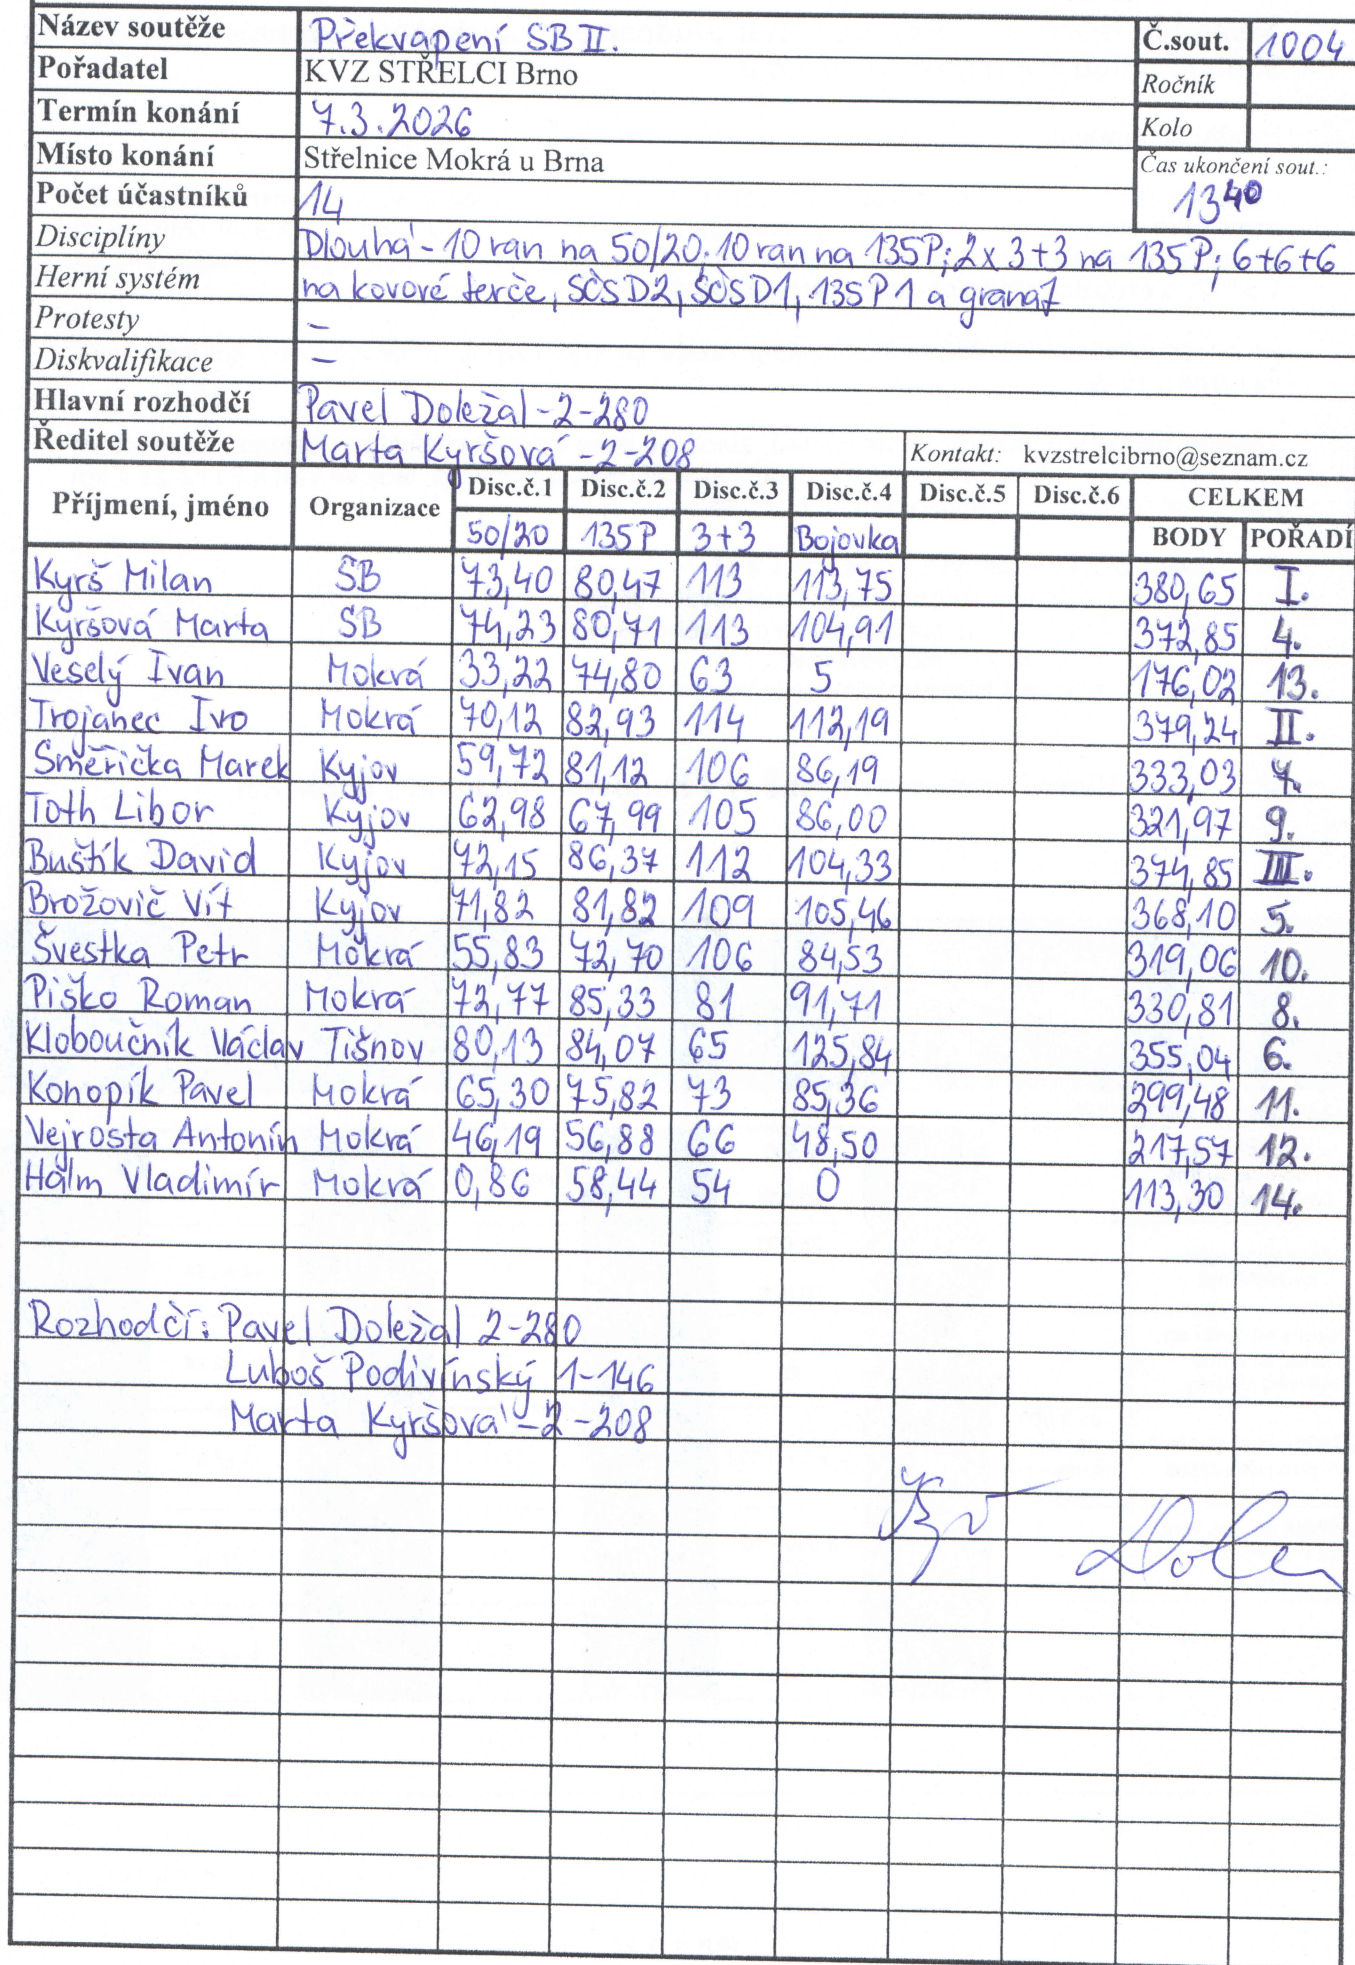 Název soutěže Překvapení SB II. Č.sout. 1004
Pořadatel KVZ STŘELCI Brno Ročník
Termín konání 7.3.2026 Kolo
Místo konání Střelnice Mokrá u Brna Čas ukončení sout.:
Počet účastníků 14 13 40
Disciplíny Dlouhá - 10 ran na 50/20; 10 ran na 135P; 2x 3+3 na 135P; 6+6+6
Herní systém na kovové terče, SČS D2, SČS D1, 135P1 a granát
Protesty –
Diskvalifikace –
Hlavní rozhodčí Pavel Doležal - 2-280
Ředitel soutěže Marta Kyršová - 2-208 Kontakt: kvzstrelcibrno@seznam.cz
Příjmení, jméno Organizace Disc.č.1 Disc.č.2 Disc.č.3 Disc.č.4 Disc.č.5 Disc.č.6 CELKEM
50/20 135P 3+3 Bojovka BODY POŘADÍ
Kyrš Milan SB 73,40 80,47 113 113,75 380,65 I.
Kyršová Marta SB 74,23 80,71 113 104,91 372,85 4.
Veselý Ivan Mokrá 33,22 74,80 63 5 176,02 13.
Trojanec Ivo Mokrá 70,12 82,93 114 112,19 379,24 II.
Směřička Marek Kyjov 59,72 81,12 106 86,19 333,03 7.
Toth Libor Kyjov 62,98 67,99 105 86,00 321,97 9.
Buštík David Kyjov 72,15 86,37 112 104,33 374,85 III.
Brožovič Vít Kyjov 71,82 81,82 109 105,46 368,10 5.
Švestka Petr Mokrá 55,83 72,70 106 84,53 319,06 10.
Piško Roman Mokrá 72,77 85,33 81 91,71 330,81 8.
Kloboučník Václav Tišnov 80,13 84,07 65 125,84 355,04 6.
Konopík Pavel Mokrá 65,30 75,82 73 85,36 299,48 11.
Vejrosta Antonín Mokrá 46,19 56,88 66 48,50 217,57 12.
Halm Vladimír Mokrá 0,86 58,44 54 0 113,30 14.
Rozhodčí: Pavel Doležal 2-280
Luboš Podivínský 1-146
Marta Kyršová - 2-208